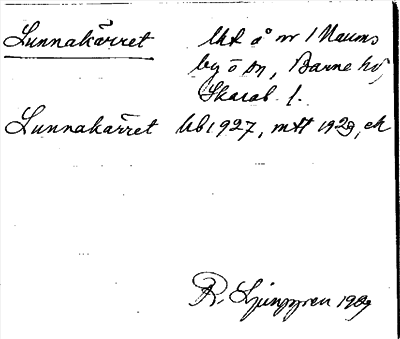 Lunnakärret   Utk å nr 1 Naums
by ö sn, Barne hd,
Skarab. l.
Lunnakärret   Ub 1927, mtt 1929, ek
R. Ljunggren 1929